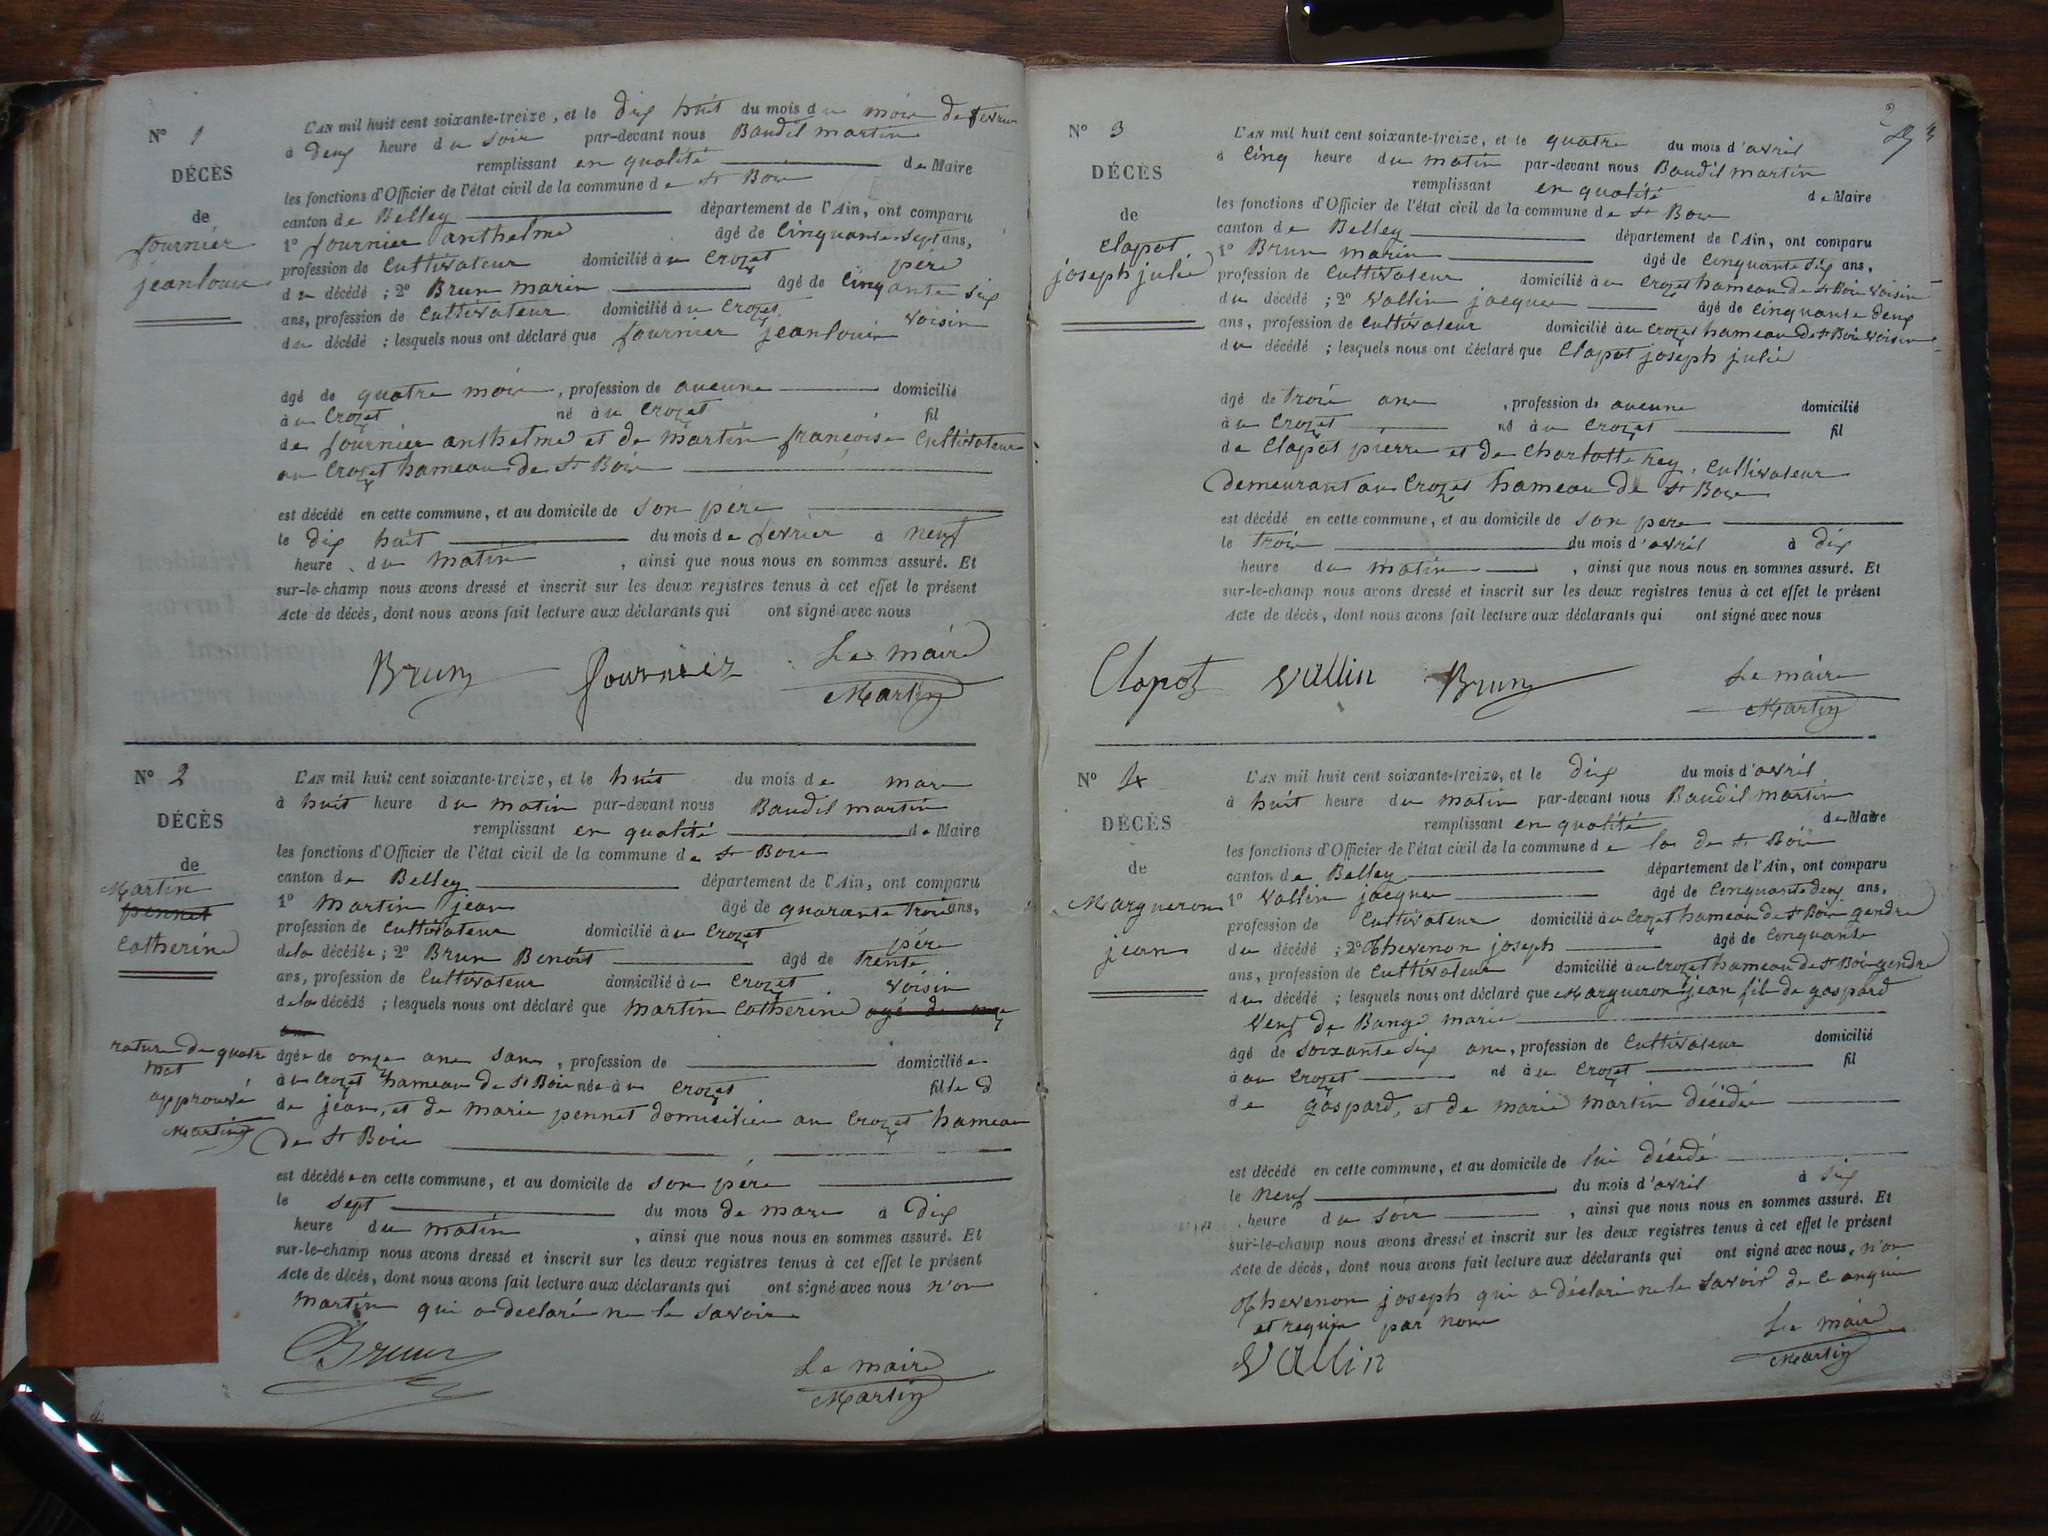 N° 1
DÉCÈS
de
fournier
jean louis
L'AN mil huit cent soixante-treize, et le dix huit du mois du mois de fevrier
à deux heure du soir par-devant nous Baudil martin
remplissant en qualité de Maire
les fonctions d'Officier de l'état civil de la commune de St Bois
canton de Belley département de l'Ain, ont comparu
1° fournier anthelme âgé de Cinquante sept ans,
profession de Cultivateur domicilié au Crozet père
du décédé ; 2° Brun marin âgé de Cinquante six
ans, profession de Cultivateur domicilié au Crozet voisin
du décédé ; lesquels nous ont déclaré que fournier jean louis
âgé de quatre mois, profession de aucune domicilié
au Crozet né au Crozet fil
de fournier anthelme et de martin françoise Cultivateur
au Crozet hameau de St Bois
est décédé en cette commune, et au domicile de son père
le dix huit du mois de fevrier à neuf
heure du matin, ainsi que nous nous en sommes assuré. Et
sur-le-champ nous avons dressé et inscrit sur les deux registres tenus à cet effet le présent
Acte de décès, dont nous avons fait lecture aux déclarants qui ont signé avec nous
Brun fournier Le maire
Martin
N° 2
DÉCÈS
de
Martin
pennet
Catherine
L'AN mil huit cent soixante-treize, et le huit du mois de mars
à huit heure du matin par-devant nous Baudil martin
remplissant en qualité de Maire
les fonctions d'Officier de l'état civil de la commune de St Bois
canton de Belley département de l'Ain, ont comparu
1° Martin jean âgé de quarante trois ans,
profession de Cultivateur domicilié au Crozet père
de la décédée ; 2° Brun Benoit âgé de trente
ans, profession de Cultivateur domicilié au Crozet voisin
de la décédé ; lesquels nous ont déclaré que Martin Catherine agé de onze
ans
rature de quatre
mot
approuvé
Martin
âgée de onze ans sans, profession de domiciliée
au Crozet hameau de St Bois née au Crozet fille d
de jean, et de marie pennet domicilié au Crozet hameau
de St Bois
est décédée en cette commune, et au domicile de son père
le sept du mois de mars à dix
heure du matin, ainsi que nous nous en sommes assuré. Et
sur-le-champ nous avons dressé et inscrit sur les deux registres tenus à cet effet le présent
Acte de décès, dont nous avons fait lecture aux déclarants qui ont signé avec nous n'on
Martin qui a declaré ne le savoir
Brun Le maire
Martin
N° 3
DÉCÈS
de
Clapot
joseph julié
L'AN mil huit cent soixante-treize, et le quatre du mois d'avril
à Cinq heure du matin par-devant nous Baudil martin
remplissant en qualité de Maire
les fonctions d'Officier de l'état civil de la commune de St Bois
canton de Belley département de l'Ain, ont comparu
1° Brun marin âgé de Cinquante six ans,
profession de Cultivateur domicilié au Crozet hameau de St Bois voisin
du décédé ; 2° Vallin jacques âgé de Cinquante deux
ans, profession de Cultivateur domicilié au Crozet hameau de St Bois voisin
du décédé ; lesquels nous ont déclaré que Clapot joseph julié
âgé de trois ans, profession de aucune domicilié
au Crozet né au Crozet fil
de Clapot pierre et de Charlotte rey, Cultivateur
Demeurant au Crozet hameau de St Bois
est décédé en cette commune, et au domicile de son père
le trois du mois d'avril à dix
heure du matin, ainsi que nous nous en sommes assuré. Et
sur-le-champ nous avons dressé et inscrit sur les deux registres tenus à cet effet le présent
Acte de décès, dont nous avons fait lecture aux déclarants qui ont signé avec nous
Clapot Vallin Brun Le maire
Martin
N° 4
DÉCÈS
de
Margueron
jean
L'AN mil huit cent soixante-treize, et le dix du mois d'avril
à huit heure du matin par-devant nous Baudil martin
remplissant en qualité de Maire
les fonctions d'Officier de l'état civil de la commune de la de St Bois
canton de Belley département de l'Ain, ont comparu
1° Vallin jacques âgé de Cinquante deux ans,
profession de Cultivateur domicilié au Crozet hameau de St Bois gendre
du décédé ; 2° Thevenon joseph âgé de Cinquante
ans, profession de Cultivateur domicilié au Crozet hameau de St Bois gendre
du décédé ; lesquels nous ont déclaré que Margueron jean fils de gaspard
veuf de Bange marie
âgé de soixante six ans, profession de Cultivateur domicilié
à au Crozet né au Crozet fil
de gaspard, et de marie martin décédé
est décédé en cette commune, et au domicile de lui décédé
le neuf du mois d'avril à six
heure du soir, ainsi que nous nous en sommes assuré. Et
sur-le-champ nous avons dressé et inscrit sur les deux registres tenus à cet effet le présent
Acte de décès, dont nous avons fait lecture aux déclarants qui ont signé avec nous, n'on
Thevenon joseph qui a déclaré ne le savoir de ce anquis
et requis par nous
Vallin Le maire
Martin